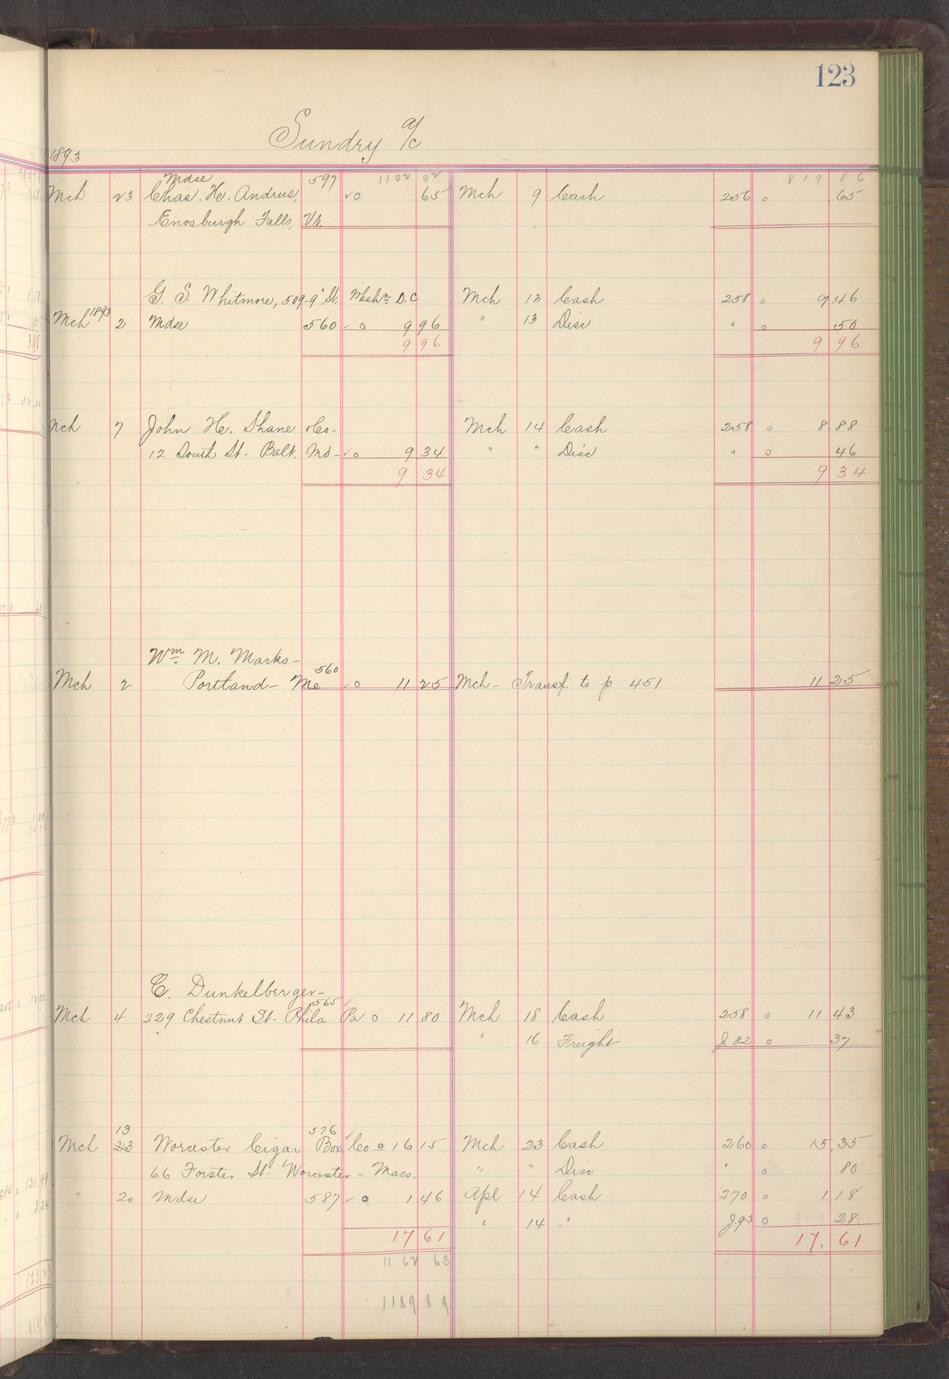 123
Sundry a/c
1893
Mdse 597 1102 02 819 86
Mch 23 Chas. H. Andrus, 0 65 Mch 9 Cash 256 0 65
Enosburgh Falls, Vt.
G. S. Whitmore, 509-9" St. Washn D.C Mch 13 Cash 258 0 9.46
Mch 1893 2 Mdse 560 0 9 96 " 13 Disc " 0 50
9 96 9 96
Mch 7 John H. Shane & Co- Mch 14 Cash 258 0 8.88
12 South St- Balt. Md- 0 9 34 " " Disc " 0 46
9 34 9 34
Wm M. Marks-
Mch 2 Portland- Me 560 0 11 25 Mch- Transf. to p 451 11 25
C. Dunkelberger-
Mch 4 329 Chestnut St- Phila. Pa 565 0 11 80 Mch 18 Cash 258 0 11 43
" 16 Freight J 82 0 37
13 576
Mch 23 Worcester Cigar Box Co 0 16 15 Mch 23 Cash 260 0 15.35
66 Forster St- Worcester- Mass. " " Disc " 0 80
" 20 Mdse 587 0 1 46 Apl 14 Cash 270 0 1 18
" 14 " J93 0 28
17 61 17.61
11 62 63
1189 89